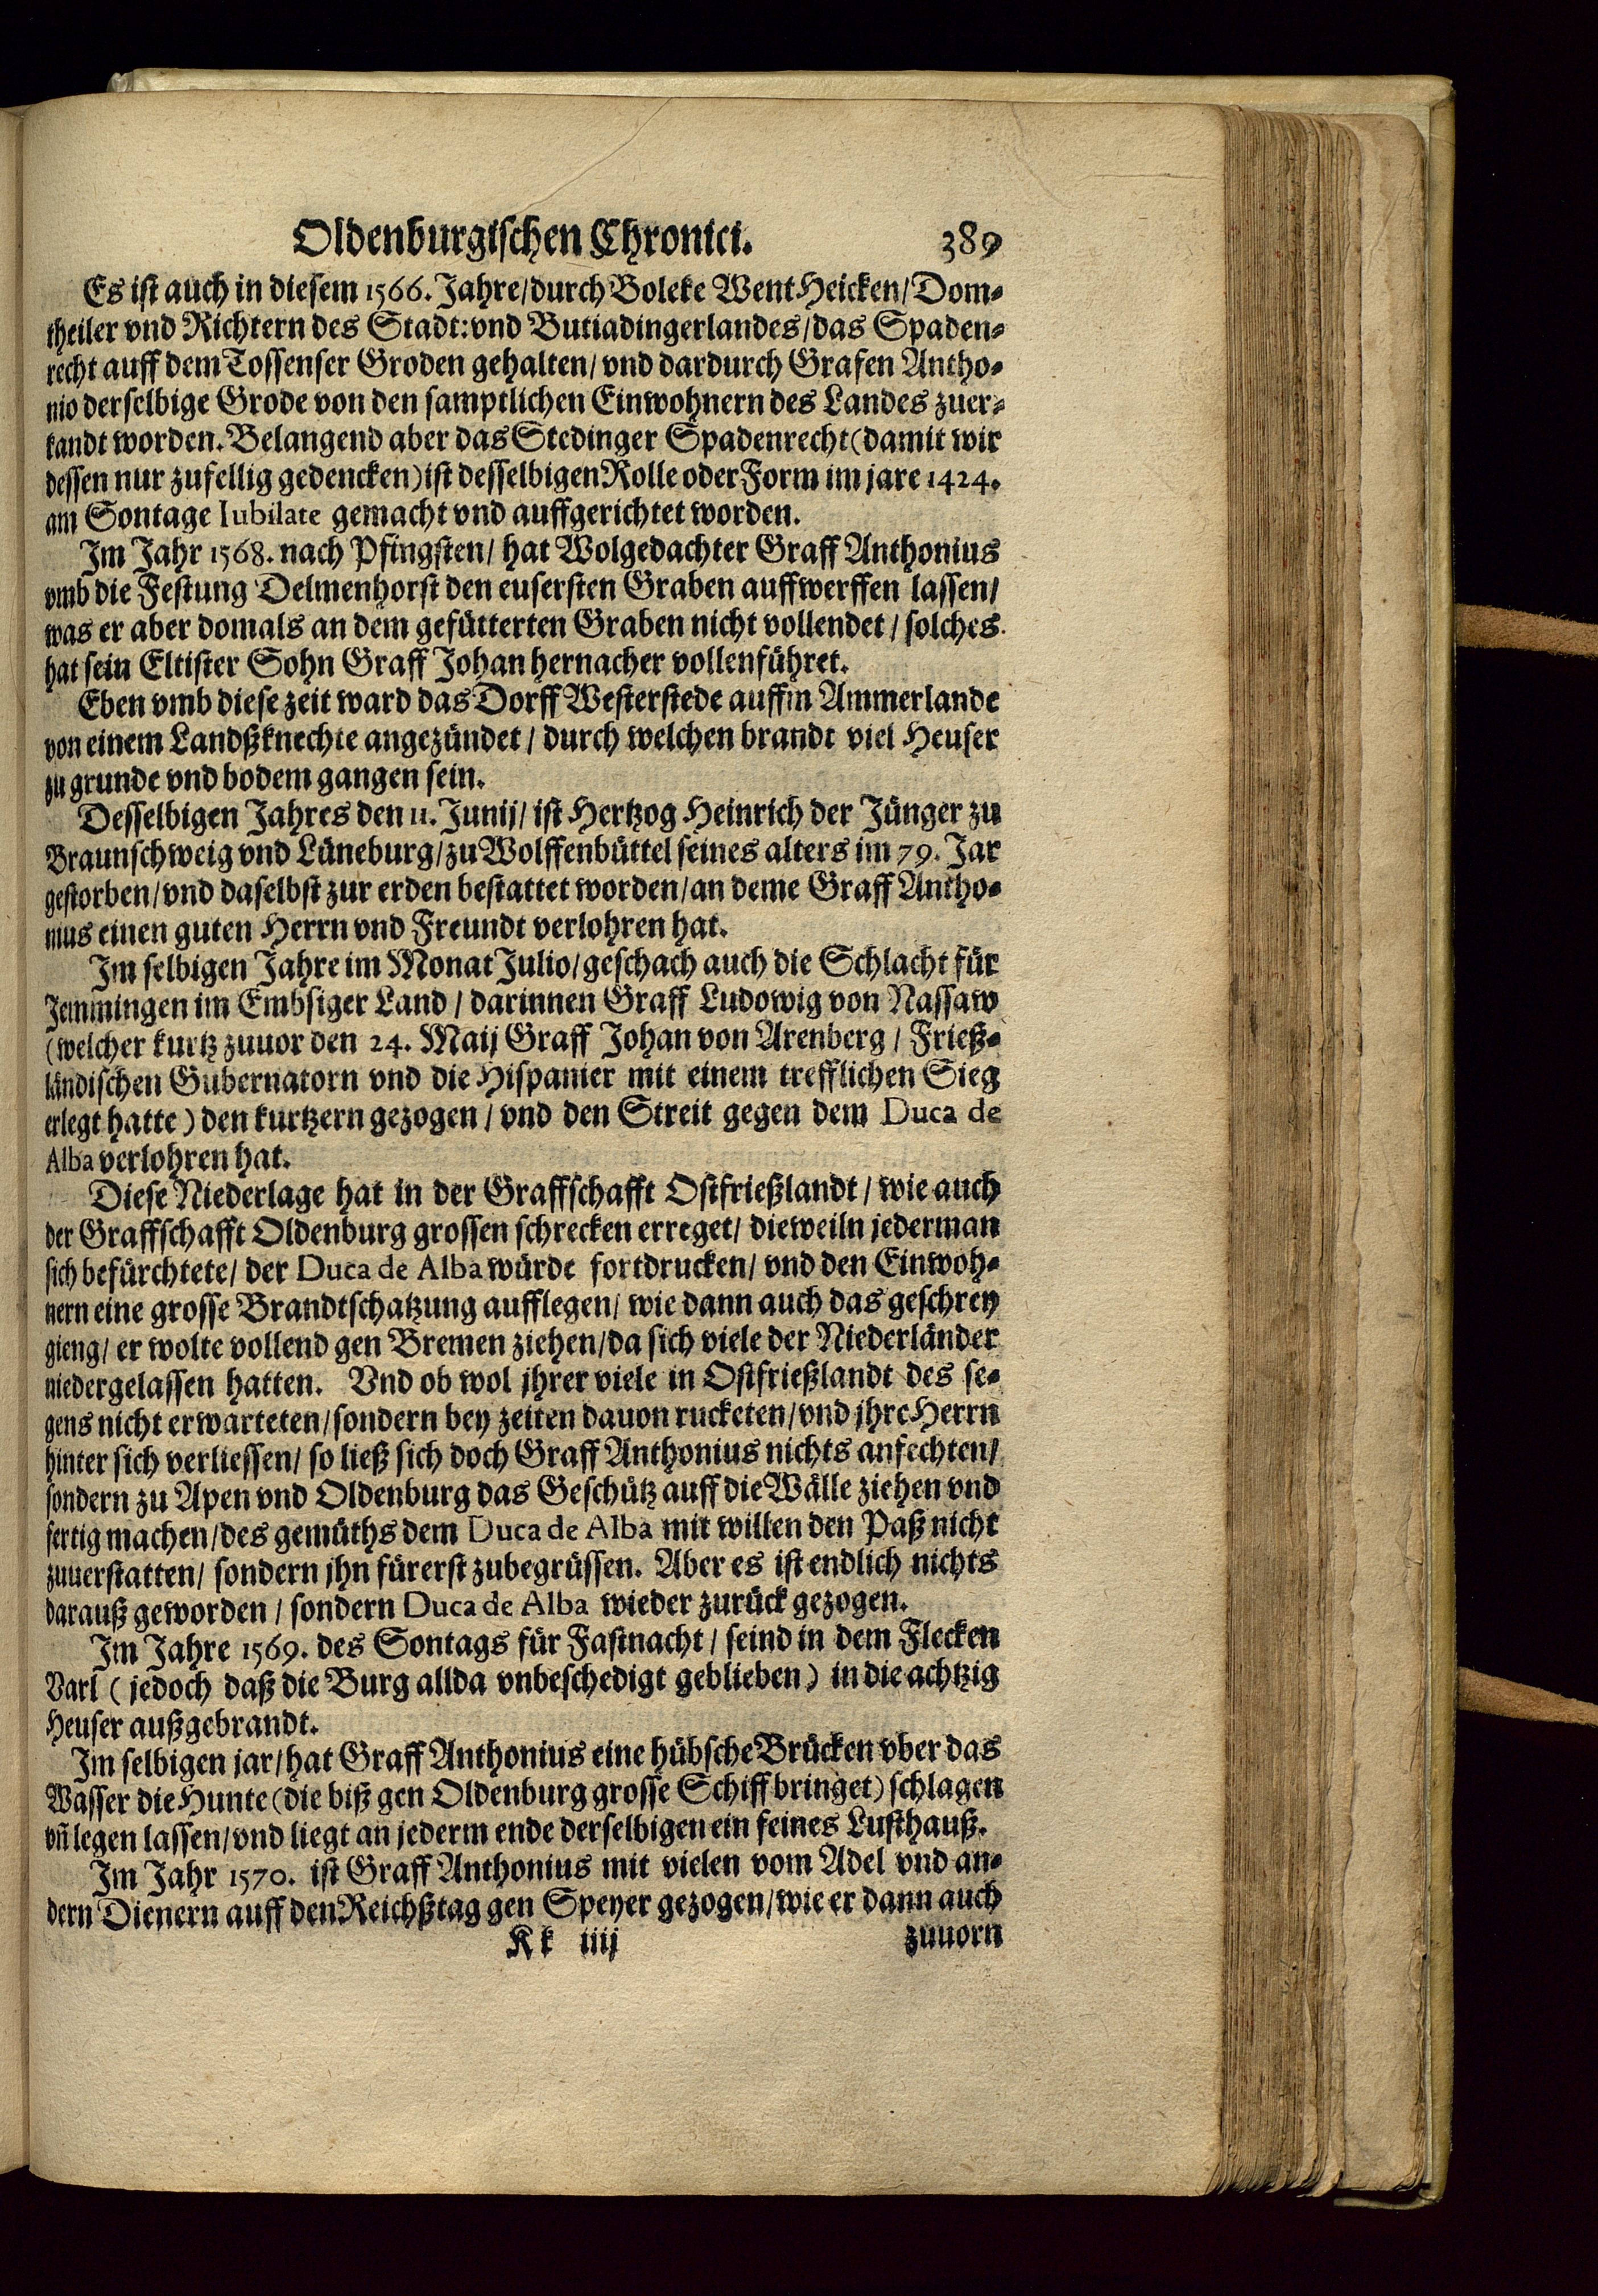 Oldenburgischen Chronici. 389
Es ist auch in diesem 1566. Jahre/durch Boleke Went Heicken/Dom-
theiler vnd Richtern des Stadt: vnd Butiadingerlandes/das Spaden-
recht auff dem Tossenser Groden gehalten/vnd dardurch Grafen Antho-
nio derselbige Grode von den samptlichen Einwohnern des Landes zuer-
kandt worden. Belangend aber das Stedinger Spadenrecht (damit wir
dessen nur zufellig gedencken) ist desselbigen Rolle oder Form im jare 1424.
am Sontage Iubilate gemacht vnd auffgerichtet worden.
Im Jahr 1568. nach Pfingsten/ hat Wolgedachter Graff Anthonius
vmb die Festung Delmenhorst den eusersten Graben auffwerffen lassen/
was er aber domals an dem gefütterten Graben nicht vollendet/ solches
hat sein Eltister Sohn Graff Johan hernacher vollenführet.
Eben vmb diese zeit ward das Dorff Westerstede auffm Ammerlande
von einem Landßknechte angezündet/ durch welchen brandt viel Heuser
zu grunde vnd bodem gangen sein.
Desselbigen Jahres den 11. Junij/ ist Hertzog Heinrich der Jünger zu
Braunschweig vnd Lüneburg/zu Wolffenbüttel seines alters im 79. Jar
gestorben/vnd daselbst zur erden bestattet worden/an deme Graff Antho-
nius einen guten Herrn vnd Freundt verlohren hat.
Im selbigen Jahre im Monat Julio/geschach auch die Schlacht für
Jemmingen im Embsiger Land/ darinnen Graff Ludowig von Nassaw
(welcher kurtz zuuor den 24. Maij Graff Johan von Arenberg/ Frieß-
ländischen Gubernatorn vnd die Hispanier mit einem trefflichen Sieg
erlegt hatte) den kurtzern gezogen/ vnd den Streit gegen dem Duca de
Alba verlohren hat.
Diese Niederlage hat in der Graffschafft Ostfrießlandt/ wie auch
der Graffschafft Oldenburg grossen schrecken erreget/ dieweiln jederman
sich befürchtete/ der Duca de Alba würde fortdrucken/ vnd den Einwoh-
nern eine grosse Brandtschatzung aufflegen/ wie dann auch das geschrey
gieng/ er wolte vollend gen Bremen ziehen/da sich viele der Niederländer
niedergelassen hatten. Vnd ob wol jhrer viele in Ostfrießlandt des se-
gens nicht erwarteten/sondern bey zeiten dauon rucketen/vnd jhre Herrn
hinter sich verliessen/ so ließ sich doch Graff Anthonius nichts anfechten/
sondern zu Apen vnd Oldenburg das Geschütz auff die Wälle ziehen vnd
fertig machen/des gemüths dem Duca de Alba mit willen den Paß nicht
zuuerstatten/ sondern jhn fürerst zubegrüssen. Aber es ist endlich nichts
darauß geworden/ sondern Duca de Alba wieder zurück gezogen.
Im Jahre 1569. des Sontags für Fastnacht/ seind in dem Flecken
Varl (jedoch daß die Burg allda vnbeschedigt geblieben) in die achtzig
Heuser außgebrandt.
Im selbigen jar/hat Graff Anthonius eine hübsche Brücken vber das
Wasser die Hunte (die biß gen Oldenburg grosse Schiff bringet) schlagen
vñ legen lassen/vnd liegt an jederm ende derselbigen ein feines Lusthauß.
Im Jahr 1570. ist Graff Anthonius mit vielen vom Adel vnd an-
dern Dienern auff den Reichßtag gen Speyer gezogen/wie er dann auch
Kk iiij zuuorn